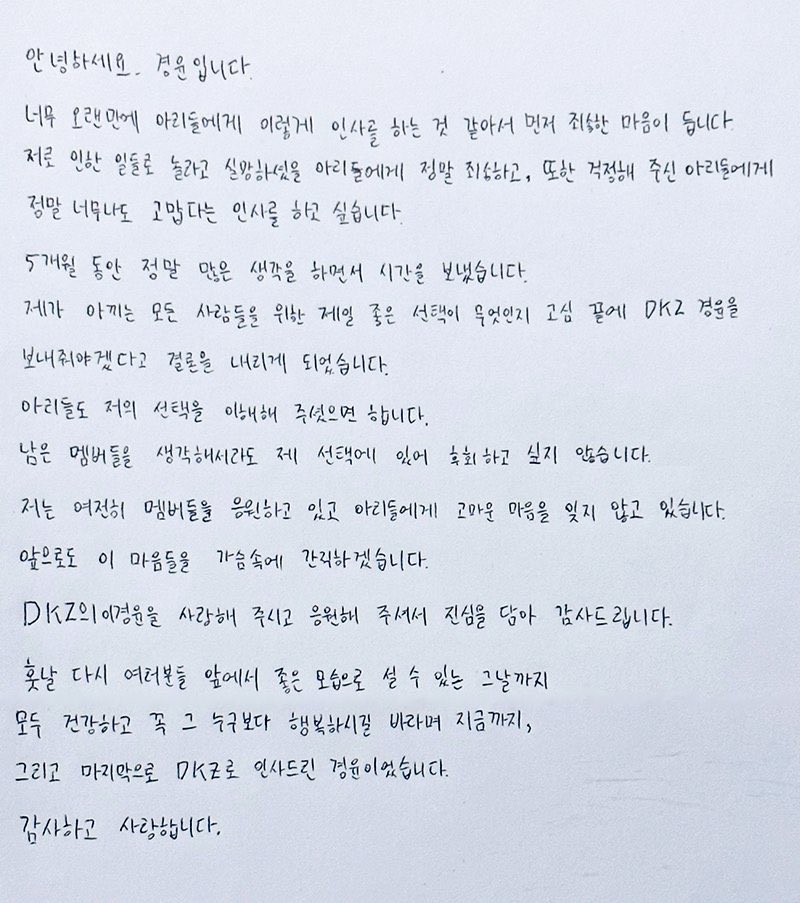 안녕하세요. 경윤입니다.
너무 오랜만에 아리들에게 이렇게 인사를 하는 것 같아서 먼저 죄송한 마음이 듭니다.
저로 인한 일들로 놀라고 실망하셨을 아리들에게 정말 죄송하고, 또한 걱정해 주신 아리들에게
정말 너무나도 고맙다는 인사를 하고 싶습니다.
5개월 동안 정말 많은 생각을 하면서 시간을 보냈습니다.
제가 아끼는 모든 사람들을 위한 제일 좋은 선택이 무엇인지 고심 끝에 DKZ 경윤을
보내줘야겠다고 결론을 내리게 되었습니다.
아리들도 저의 선택을 이해해 주셨으면 합니다.
남은 멤버들을 생각해서라도 제 선택에 있어 후회하고 싶지 않습니다.
저는 여전히 멤버들을 응원하고 있고 아리들에게 고마운 마음을 잊지 않고 있습니다.
앞으로도 이 마음들을 가슴속에 간직하겠습니다.
DKZ의 이경윤을 사랑해 주시고 응원해 주셔서 진심을 담아 감사드립니다.
훗날 다시 여러분들 앞에서 좋은 모습으로 설 수 있는 그날까지
모두 건강하고 꼭 그 누구보다 행복하시길 바라며 지금까지,
그리고 마지막으로 DKZ로 인사드린 경윤이었습니다.
감사하고 사랑합니다.